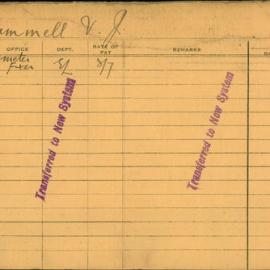 ammell V. J.
OFFICE DEPT. RATE OF PAY REMARKS
meter
Fixer 8/7
Transferred to New System
Transferred to New System